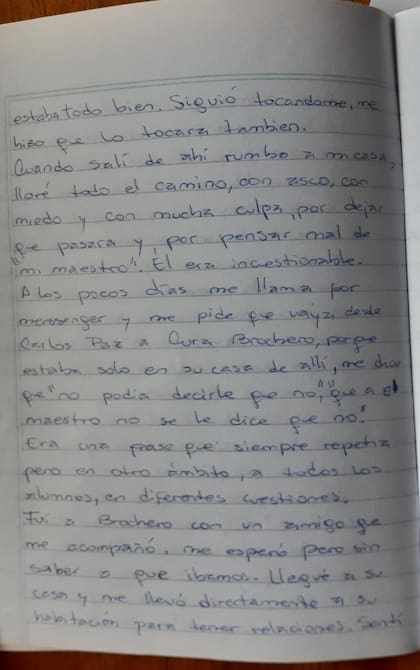 estaba todo bien. Siguió tocandome, me
hizo que lo tocara tambien.
Cuando salí de ahí rumbo a mi casa,
lloré todo el camino, con asco, con
miedo y con mucha culpa, por dejar
que pasara y, por pensar mal de
"mi maestro". El era incuestionable.
A los pocos días me llama por
messenger y me pide que vaya desde
Carlos Paz a Cura Brochero, porque
estaba solo en su casa de allí, me dice
que "no podia decirle que no", "que a el
maestro no se le dice que no".
Era una frase que siempre repetia
pero en otro ámbito, a todos los
alumnos, en diferentes cuestiones.
Fui a Brochero con un amigo que
me acompañó, me esperó pero sin
saber a que ibamos. Llegué a su
casa y me llevó directamente a su
habitación para tener relaciones. Sentí